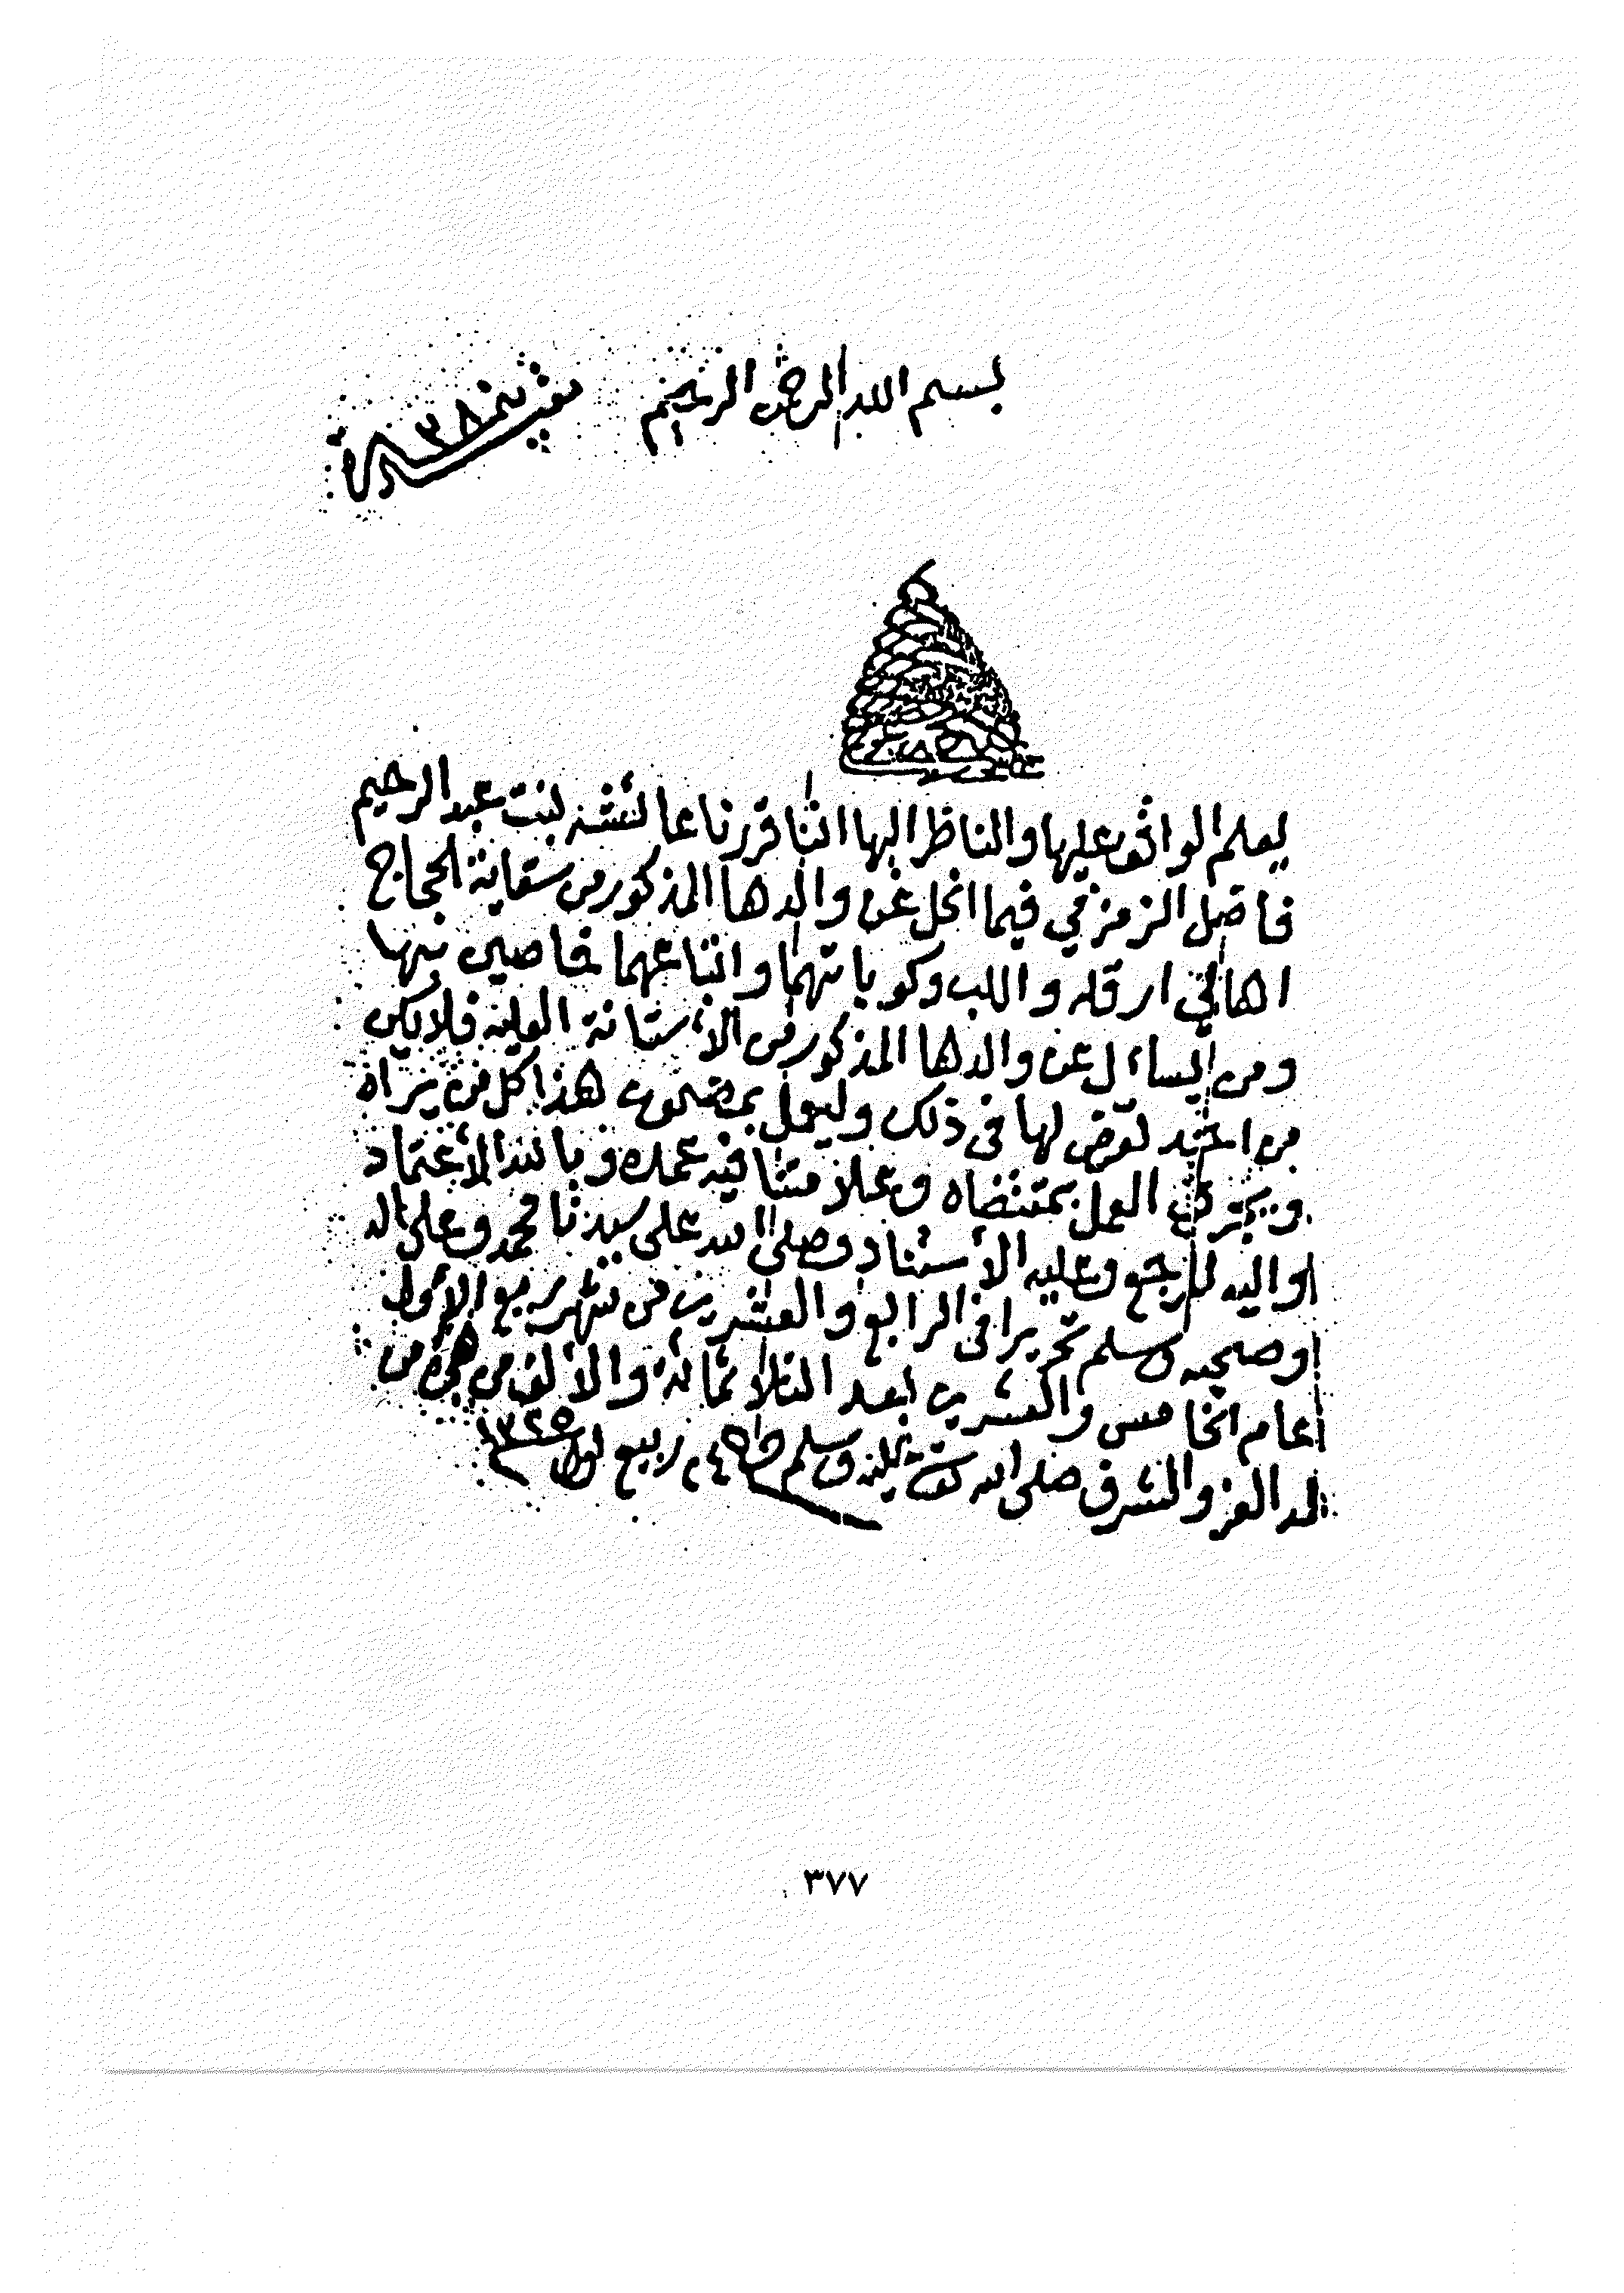 بسم الله الرحمن الرحيم
٣٨
يعلم الواقف عليها والناظر اليها اننا قررنا عائشة بنت عبد الرحيم
فاضل الزمزمي فيما انحل عن والدها المذكور من سقاية الحجاج
اهالي اركه واللب وكوياتهما واتباعهما خاصين بها
ومن يساءل عن والدها المذكور في الأستانة العلية فلا يكن
من احد تعرض لها في ذلك وليعمل بمضمون هذا كل من يراه
العمل بمقتضاه وعلامتنا فيه عمده وبالله الأعتماد
واليه المرجع وعليه الأستناد وصلى الله على سيدنا محمد وعلى اله
وصحبه وسلم تحريرا في الرابع والعشرين من شهر ربيع الاول
عام الخامس والعشرين بعد الثلاثمائة والألف من هجرة من
له العز والشرف صلى الله وسلم ٢٤ ربيع اول ١٣٢٥
٣٧٧